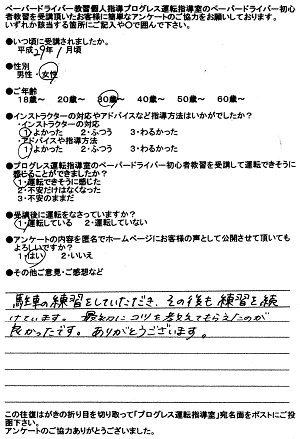 ペーパードライバー教習個人指導プログレス運転指導室のペーパードライバー初心
者教習を受講頂いたお客様に簡単なアンケートのご協力をお願いしております。
いずれか該当する箇所にご記入や○で囲んで下さい。
●いつ頃に受講されましたか。
平成29年1月頃
●性別
男性・女性
●ご年齢
18歳～ 20歳～ 30歳～ 40歳～ 50歳～ 60歳～
●インストラクターの対応やアドバイスなど指導方法はいかがでしたか?
・インストラクターの対応
1・よかった 2・ふつう 3・わるかった
・アドバイスや指導方法
1・よかった 2・ふつう 3・わるかった
●プログレス運転指導室のペーパードライバー初心者教習を受講して運転できそうに
感じることができましたか?
1・運転できそうに感じた
2・不安だけはなくなった
3・不安のままだ
●受講後に運転をなさっていますか?
1・運転している 2・運転していない
●アンケートの内容を匿名でホームページにお客様の声として公開させて頂いても
よろしいですか?
1・はい 2・いいえ
●その他ご意見・ご感想など
駐車の練習をしていただき、その後も練習を続
けています。最初にコツを教えてもらえたのが
良かったです。ありがとうございます。
この往復はがきの折り目を切り取って「プログレス運転指導室」宛名面をポストにご投
函下さい。
アンケートのご協力ありがとうございました。